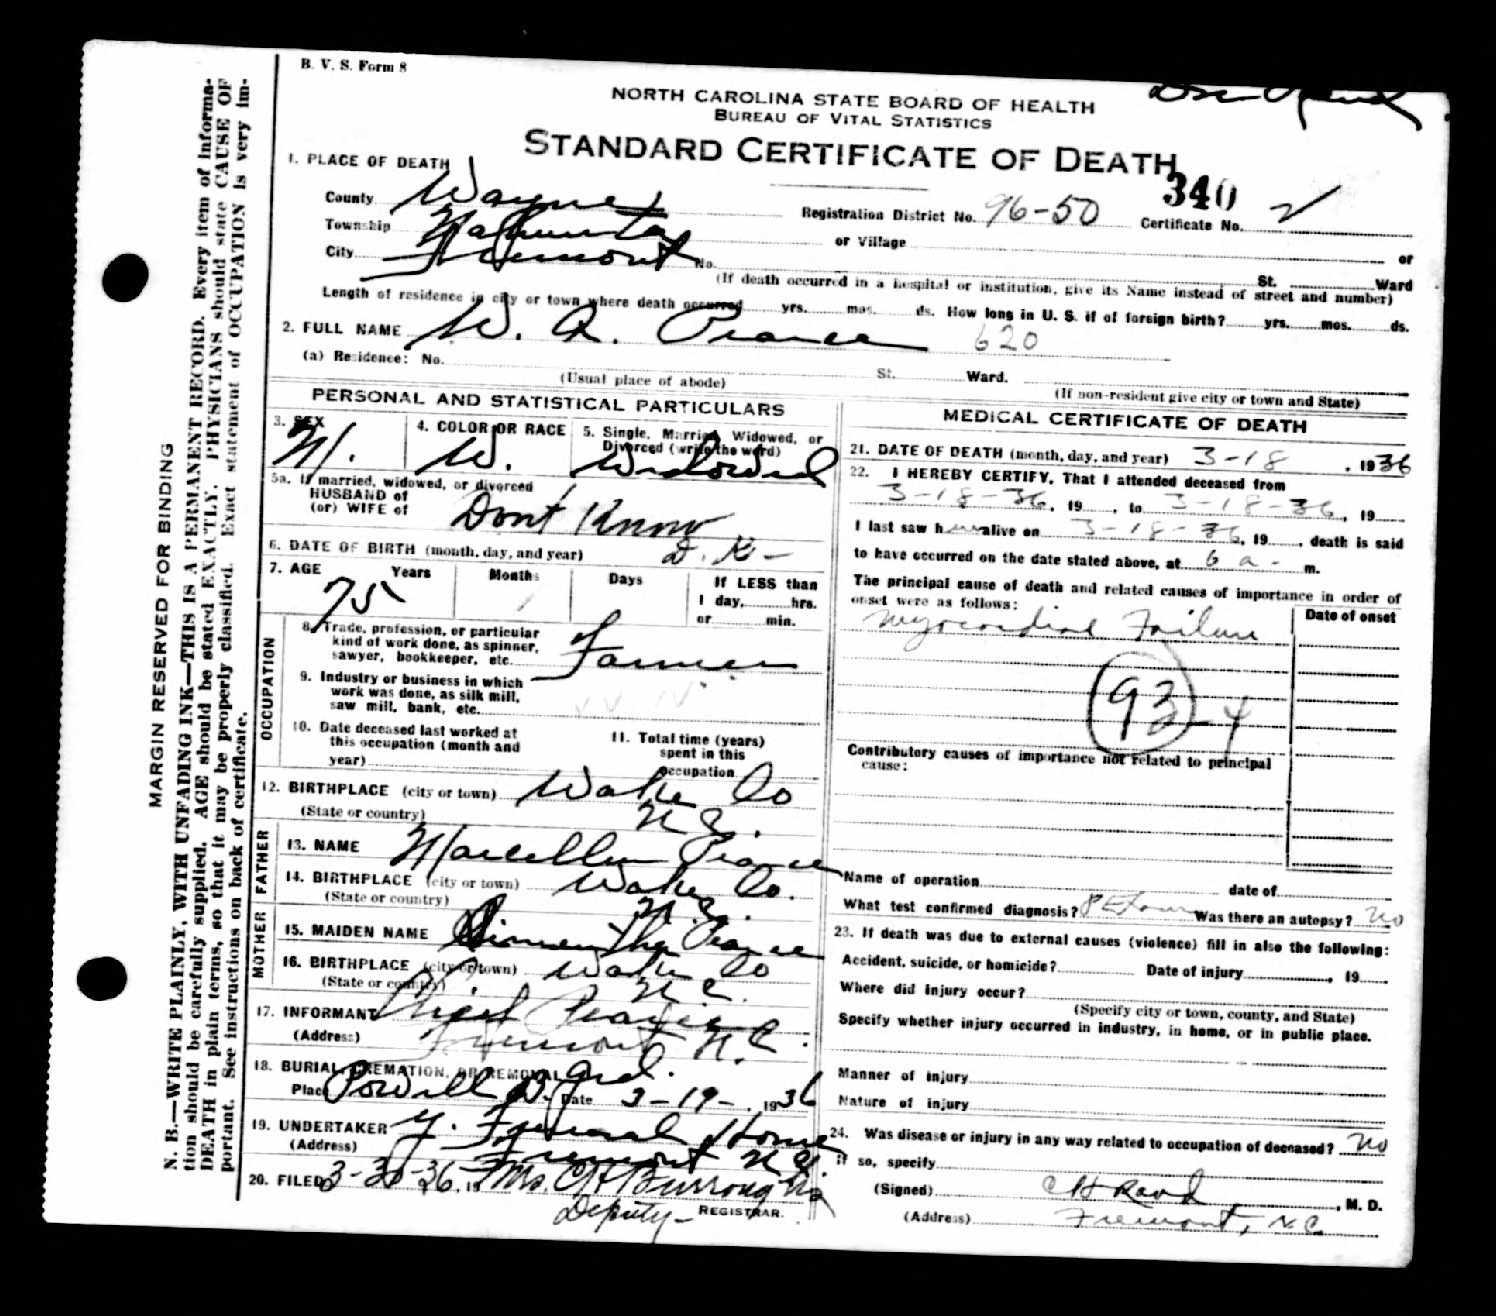 B. V. S. Form 8
NORTH CAROLINA STATE BOARD OF HEALTH
BUREAU OF VITAL STATISTICS
STANDARD CERTIFICATE OF DEATH
340
1. PLACE OF DEATH
County Wayne Registration District No. 96-50 Certificate No. 2
Township Nahunta or Village of
City Fremont No. St. Ward
(If death occurred in a hospital or institution, give its Name instead of street and number)
Length of residence in city or town where death occurred yrs. mos. ds. How long in U. S. if of foreign birth? yrs. mos. ds.
2. FULL NAME W. R. Pearce 620
(a) Residence: No. St. Ward.
(Usual place of abode) (If non-resident give city or town and State)
PERSONAL AND STATISTICAL PARTICULARS
3. SEX M. 4. COLOR OR RACE W. 5. Single, Married, Widowed, or Divorced (write the word) Widowed
5a. If married, widowed, or divorced
HUSBAND of
(or) WIFE of Dont Know
6. DATE OF BIRTH (month, day, and year) D. K-
7. AGE Years Months Days If LESS than
75 1 day, hrs.
or min.
OCCUPATION
8. Trade, profession, or particular
kind of work done, as spinner,
sawyer, bookkeeper, etc. Farmer
9. Industry or business in which
work was done, as silk mill,
saw mill, bank, etc.
10. Date deceased last worked at
this occupation (month and
year)
11. Total time (years)
spent in this
occupation
12. BIRTHPLACE (city or town) Wake Co
(State or country) N C.
FATHER
13. NAME Marcellus Pearce
14. BIRTHPLACE (city or town) Wake Co.
(State or country) N. C.
MOTHER
15. MAIDEN NAME Pearce
16. BIRTHPLACE (city or town) Wake Co
(State or country) N. C.
17. INFORMANT Pearce
(Address) Fremont N. C.
18. BURIAL, CREMATION, OR REMOVAL
Place Powell Date 3-19-, 1936
19. UNDERTAKER Y. Funeral Home
(Address) Fremont N C.
20. FILED 3-30-36, 19 Mrs. C H Burroughs
Deputy- REGISTRAR.
MEDICAL CERTIFICATE OF DEATH
21. DATE OF DEATH (month, day, and year) 3-18, 1936
22. I HEREBY CERTIFY, That I attended deceased from
3-18-36, 19, to 3-18-36, 19
I last saw him alive on 3-18-36, 19, death is said
to have occurred on the date stated above, at 6 a- m.
The principal cause of death and related causes of importance in order of
onset were as follows:
Date of onset
Myocardial Failure
93-4
Contributory causes of importance not related to principal
cause:
Name of operation date of
What test confirmed diagnosis? P Exam Was there an autopsy? No
23. If death was due to external causes (violence) fill in also the following:
Accident, suicide, or homicide? Date of injury, 19
Where did injury occur?
(Specify city or town, county, and State)
Specify whether injury occurred in industry, in home, or in public place.
Manner of injury
Nature of injury
24. Was disease or injury in any way related to occupation of deceased? No
If so, specify
(Signed) , M. D.
(Address) Fremont, N C
MARGIN RESERVED FOR BINDING
N. B.—WRITE PLAINLY, WITH UNFADING INK—THIS IS A PERMANENT RECORD. Every item of informa-
tion should be carefully supplied. AGE should be stated EXACTLY. PHYSICIANS should state CAUSE OF
DEATH in plain terms, so that it may be properly classified. Exact statement of OCCUPATION is very im-
portant. See instructions on back of certificate.